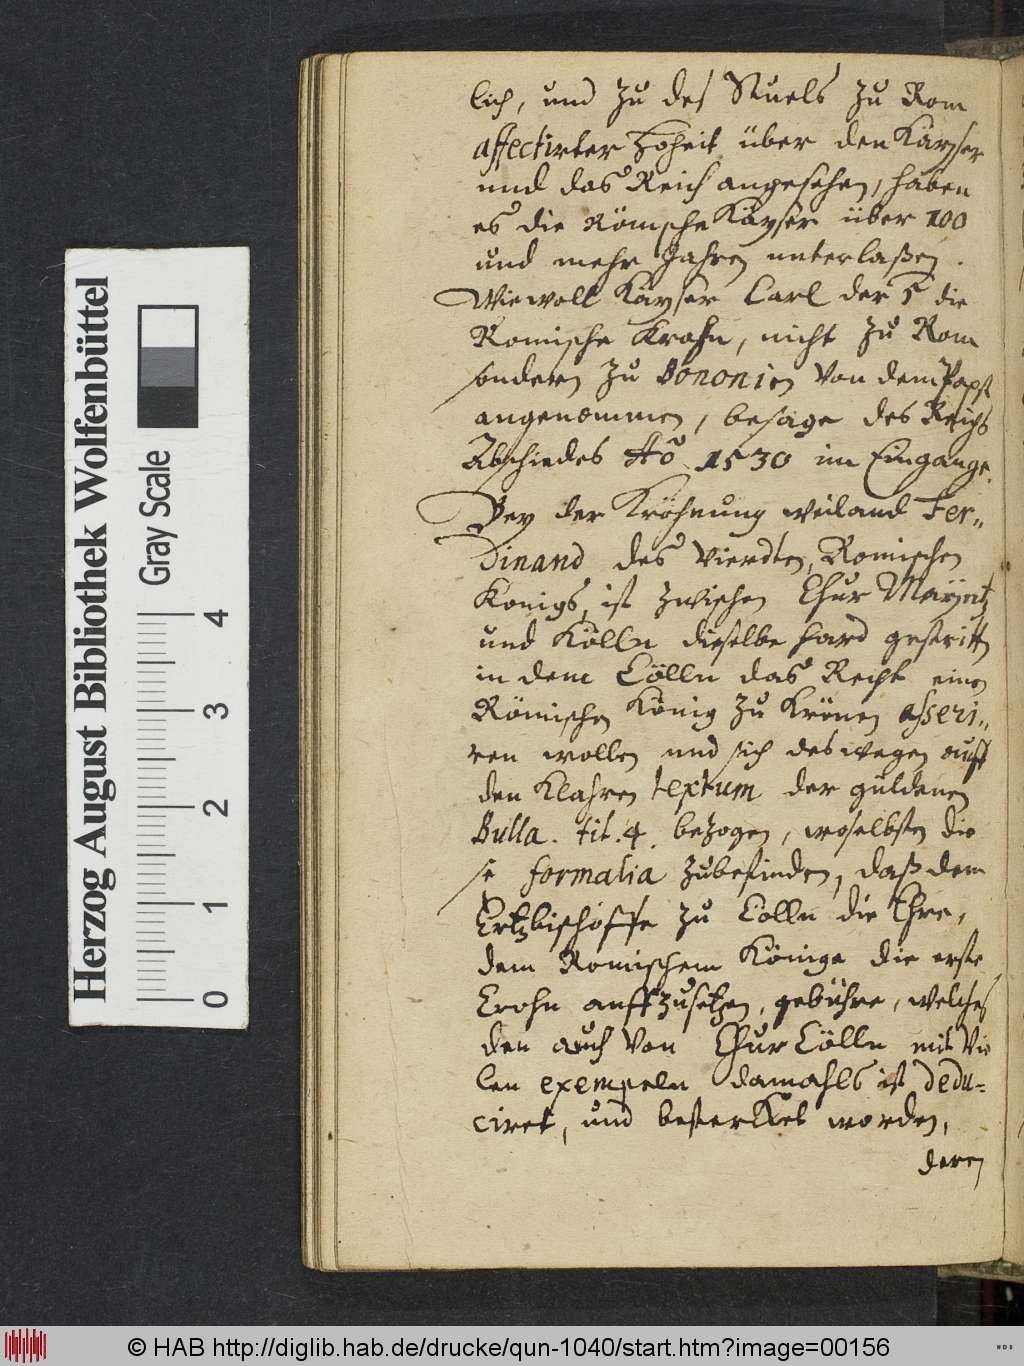 lich, und zu des Stuels zu Rom
affectirter Hoheit über den Käyser
und das Reich angesehen, haben
es die Römsche Käyser über 100
und mehr Jahren unterlaßen.
Wiewoll Käyser Carl der 5 die
Romische Krohn, nicht zu Rom
sondern zu Bononien von dem Papst
angenommen, besage des Reichs
Abschiedes Aõ 1530 im Eingange.
Bey der Kröhnung weiland Fer-
dinand des Vierdten, Romischen
Konigs, ist zwischen Chur Mayntz
und Kölln dieselbe hard gestritten
in dem Cölln das Recht einen
Römischen König zu Krönen asseri-
ren wollen und sich deswegen auff
den Klahren textum der güldenen
Bulla. tit. 4. bezogen, woselbsten die
se formalia zubefinden, daß dem
Ertzbischoffe zu Cölln die Ehre,
dem Romischem Könige die erste
Crohn auffzusetzen, gebühre, welches
den auch von Chur Cölln mit vie
len exempeln damahls ist dedu-
ciret, und besterket worden,
deren
Herzog August Bibliothek Wolfenbüttel
Gray Scale
0 1 2 3 4
© HAB http://diglib.hab.de/drucke/qun-1040/start.htm?image=00156